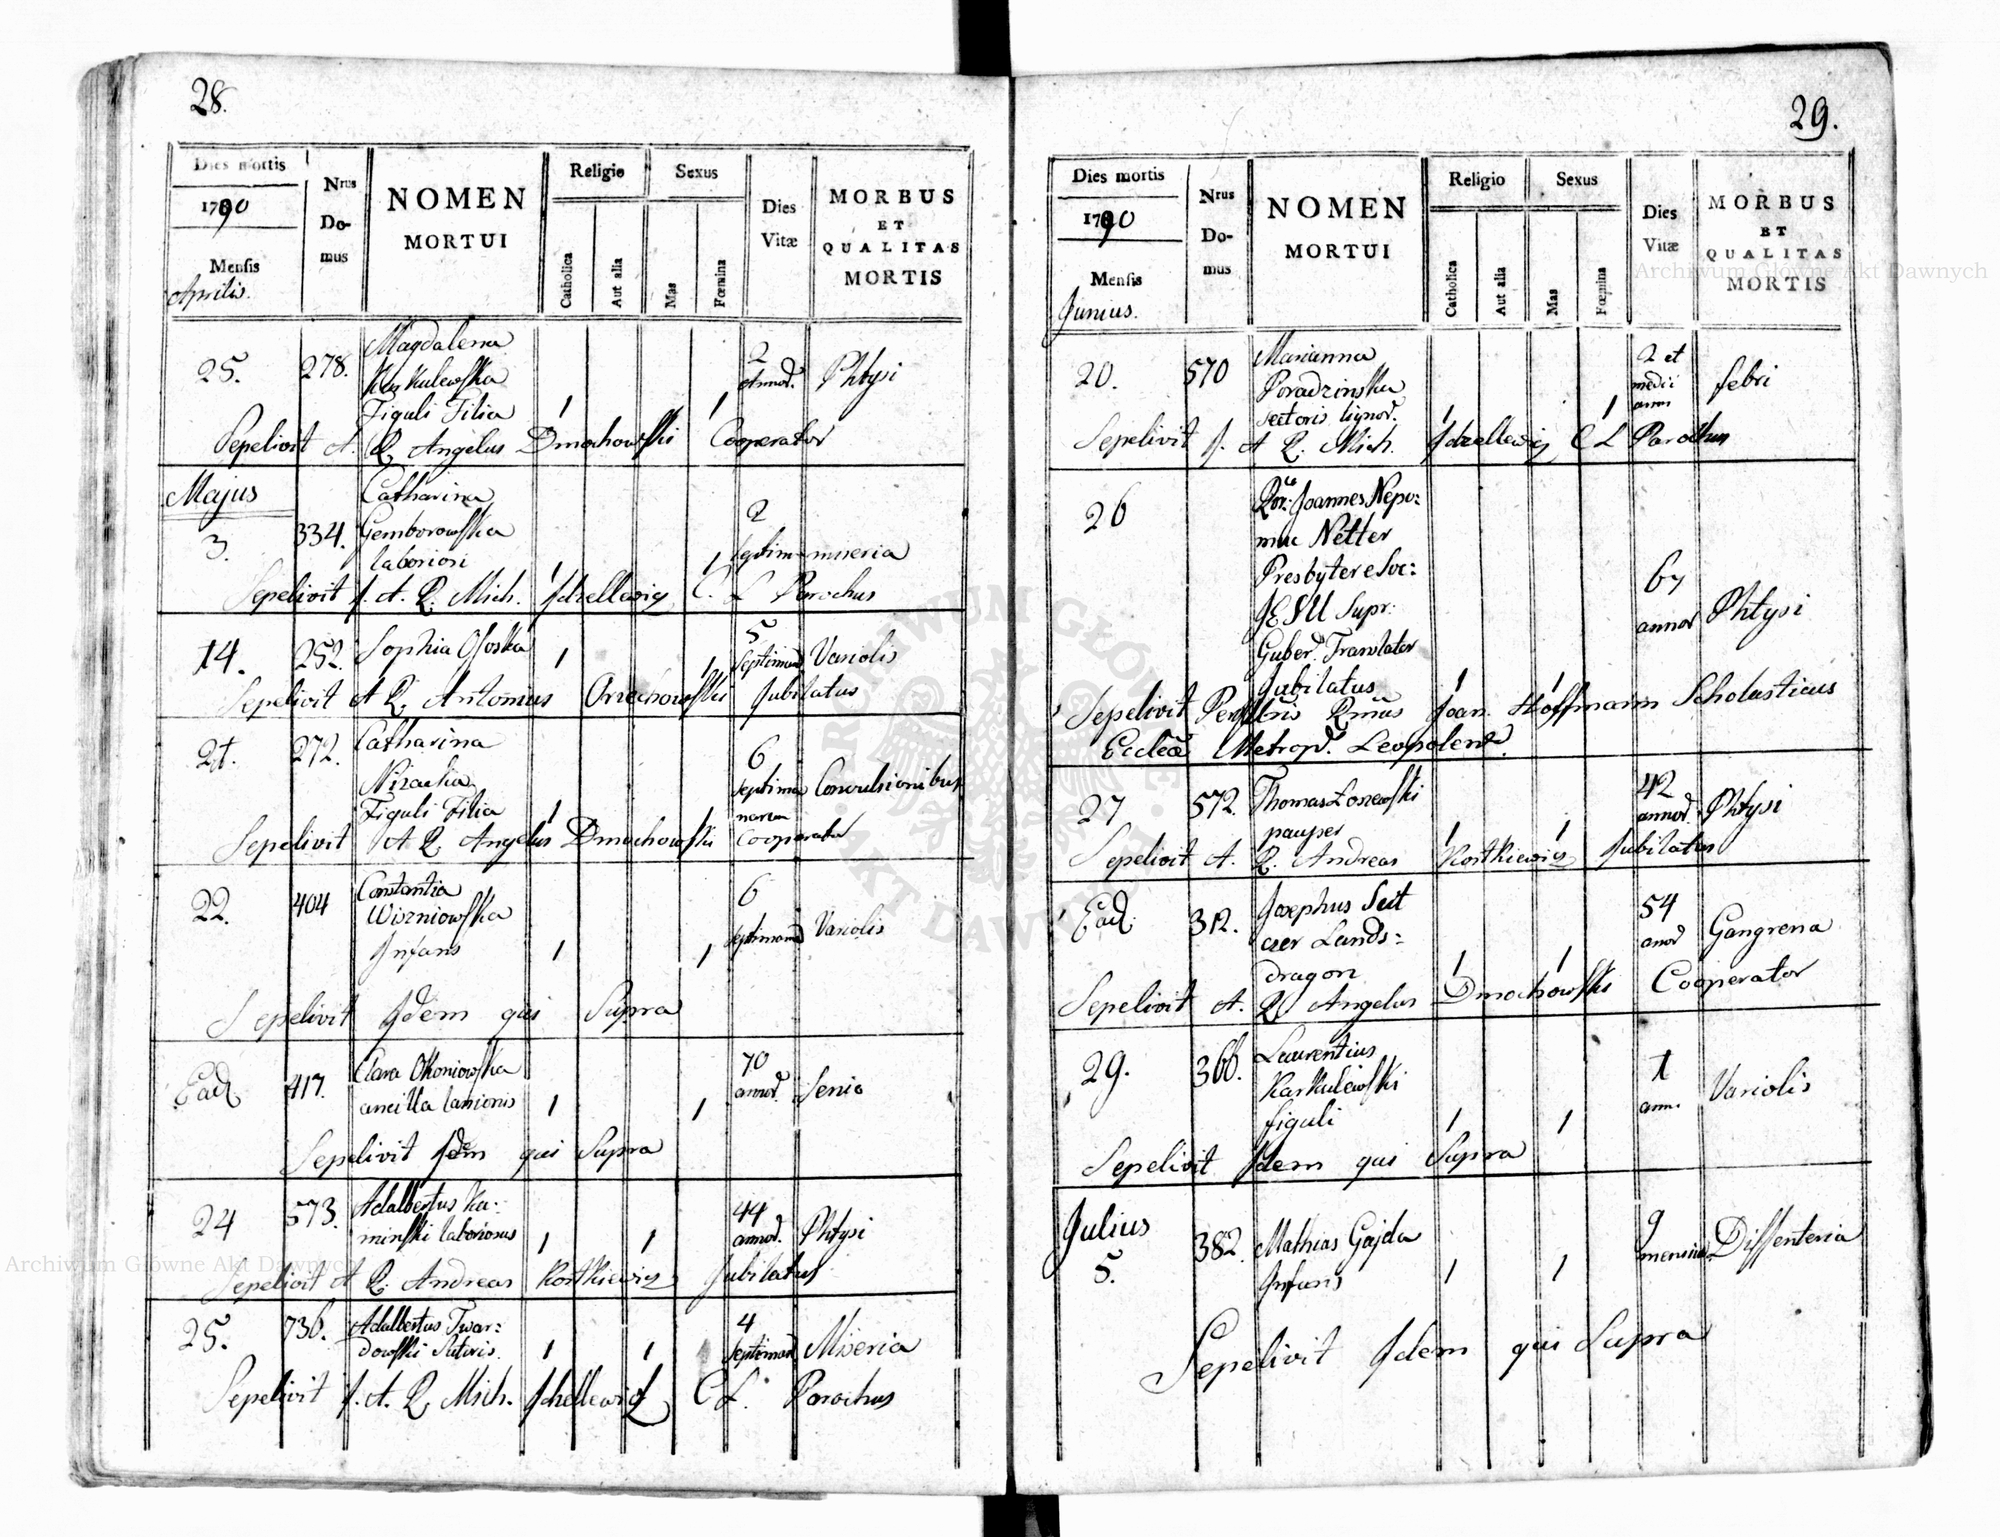 28.
Dies mortis
1790
Mensis
Aprilis.
Nrus
Do-
mus
NOMEN
MORTUI
Religio
Catholica
Aut alia
Sexus
Mas
Fœmina
Dies
Vitæ
MORBUS
ET
QUALITAS
MORTIS
25. 278. Magdalena
Karkulewska
Figuli Filia 1 1 2 annor. Phtysi
Sepelivit A. R. Angelus Dmochowski Cooperator
Majus
3. 334. Catharina
Gemborowska
laboriosi 1 1 2 septim miseria
Sepelivit J. A. R. Mich. C. L Parochus
14. 252. Sophia Ososka 1 1 5 Septiman Variolis
Sepelivit A R. Antonius Orzechowski Jubilatus
21. 272. Catharina
Figuli Filia 1 1 6 septima Convulsionibus
Sepelivit A R. Angelus Dmochowski Cooperator
22. 404 Constantia
Wiszniowska
Infans 1 1 6 septimana Variolis
Sepelivit Idem qui Supra
Ead. 417. Clara Okoniowska
ancilla lanionis 1 1 70 annor. Senio
Sepelivit Idem qui Supra
24 573. Adalbertus Ka-
minski laboriosus 1 1 44 annor. Phtysi
Sepelivit A R. Andreas Kostkiewicz Jubilatus
25. 736. Adalbertus Twar:
dowski Sutoris. 1 1 4 Septiman Miseria
Sepelivit J. A. R. Mich. C L. Parochus
29.
Dies mortis
1790
Mensis
Junius.
Nrus
Do-
mus
NOMEN
MORTUI
Religio
Catholica
Aut alia
Sexus
Mas
Fœmina
Dies
Vitæ
MORBUS
ET
QUALITAS
MORTIS
20. 570 Marianna
Poradzinska
sectoris lignor. 1 1 2 et medii anni febri
Sepelivit J. A R. Mich. C L Parochus
26 Joannes Nepo:
muc Netter
Presbyter e Soc:
JESU Supr:
Guber. Translator
Jubilatus 1 1 67 annor Phtysi
Sepelivit Rmus Joan. Hoffmann Scholasticus
Eccleæ Metrop. Leopolens.
27 572. Thomas Loszewski
pauper 1 1 42 annor. Phtysi
Sepelivit A. R. Andreas Kostkiewicz Jubilatus
Ead. 312. Josephus Seit
czer Lands:
dragon 1 1 54 anor Gangrena
Sepelivit A. R Angelus Dmochowski Cooperator
29. 366. Laurentius
Karkulewski
figuli 1 1 1 anni Variolis
Sepelivit Idem qui Supra
Julius
5. 382. Mathias Gajda
Infans 1 1 9 mensium Dissenteria
Sepelivit Idem qui Supra
ARCHIWUM GŁÓWNE AKT DAWNYCH
Archiwum Główne Akt Dawnych
Archiwum Główne Akt Dawnych